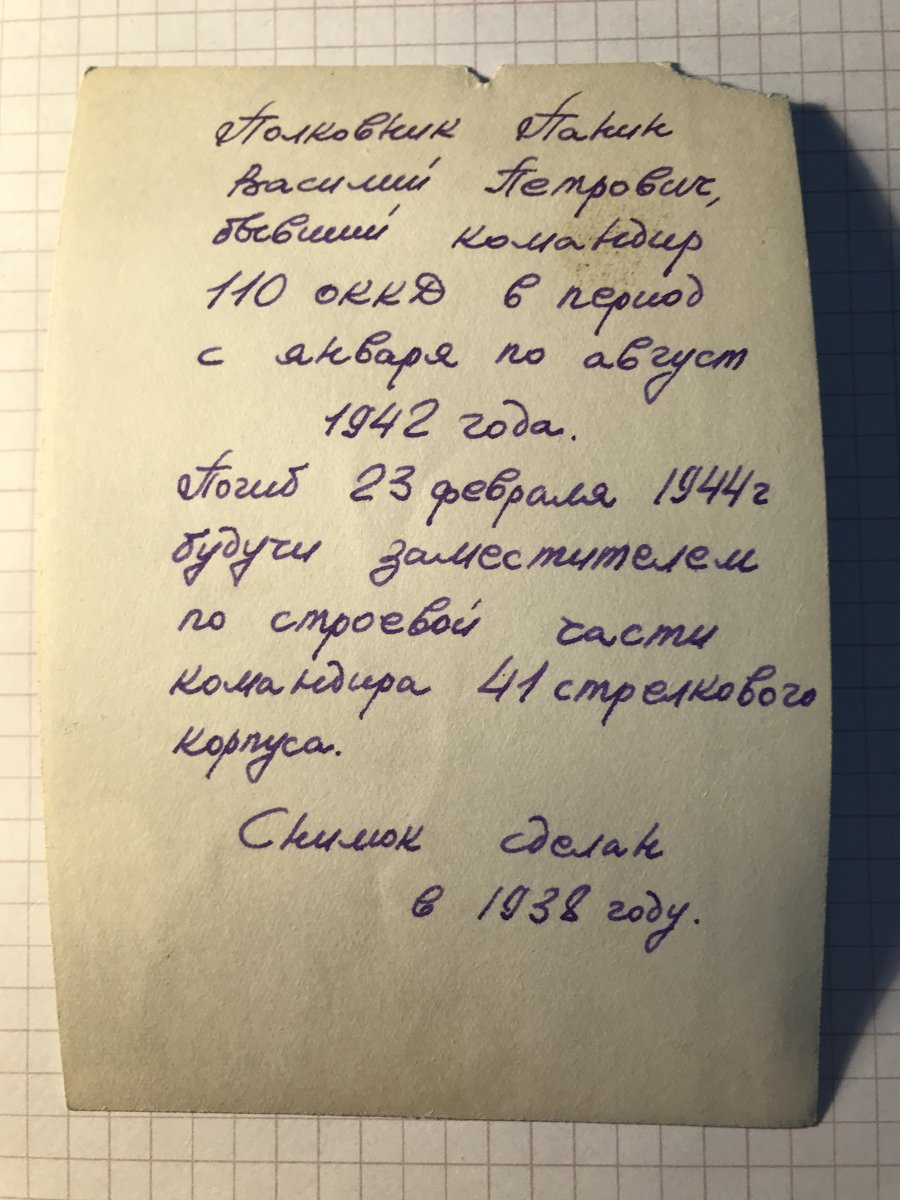 Полковник Панин
Василий Петрович,
бывший командир
110 ОККД в период
с января по август
1942 года.
Погиб 23 февраля 1944г
будучи заместителем
по строевой части
командира 41 стрелкового
корпуса.
Снимок сделан
в 1938 году.